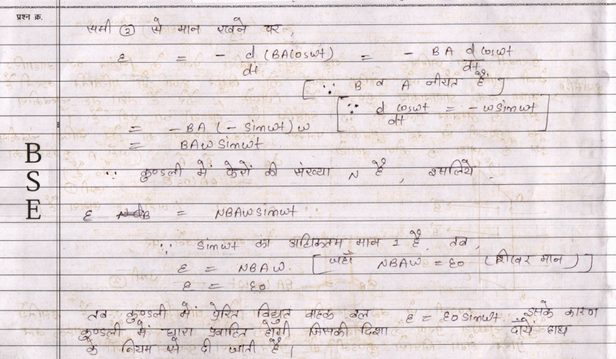 प्रश्न क्र.
समी (2) से मान रखने पर,
ε = - d/dt (BA cosωt) = - BA d cosωt/dt
[∵ B व A नीयत है]
= - BA (- sinωt) ω [∵ d cosωt/dt = - ω sinωt]
= BAω sinωt
∵ कुण्डली में फेरों की संख्या N है, इसलिये
ε = NBAω sinωt
∵ sinωt का अधिकतम मान 1 है, तब,
ε = NBAω. [जहाँ NBAω = ε0 (शिखर मान)]
ε = ε0
तब कुण्डली में प्रेरित विद्युत वाहक बल ε = ε0 sinωt इसके कारण
कुण्डली में धारा प्रवाहित होगी जिसकी दिशा दाँये हाथ
के नियम से दी जाती है।
B
S
E